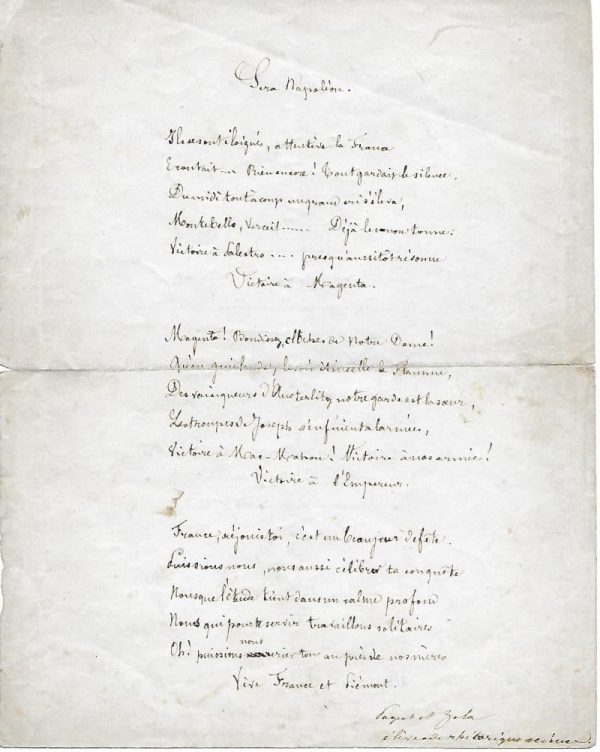 Napoléon.
Ils se sont éloignés, attentive la France
Ecoutait.... Rien encore! Tout gardait le silence.
Du midi tout à coup un grand cri s'éleva,
Montebello, Verceil...... Déjà le canon tonne:
Victoire à Palestro.... presqu'aussitôt résonne
Victoire à Magenta.
Magenta! Bondissez, cloches de Notre Dame!
le soir étincelle la flamme,
Des vainqueurs d'Austerlitz, notre garde est la sœur,
Les troupes de Joseph s'enfuient alarmées,
Victoire à Mac-Mahon! Victoire à nos armées!
Victoire à l'Empereur.
France, réjouis toi, c'est un beau jour de fête.
Puissions nous, nous aussi célébrer ta conquête
Nous que l'étude tient dans un calme profond
Nous qui pour te servir travaillons solitaires
Oh! puissions nous crier au pieds de nos mères
Vive France et Piémont.
et Zola
élèves de rhétorique sciences